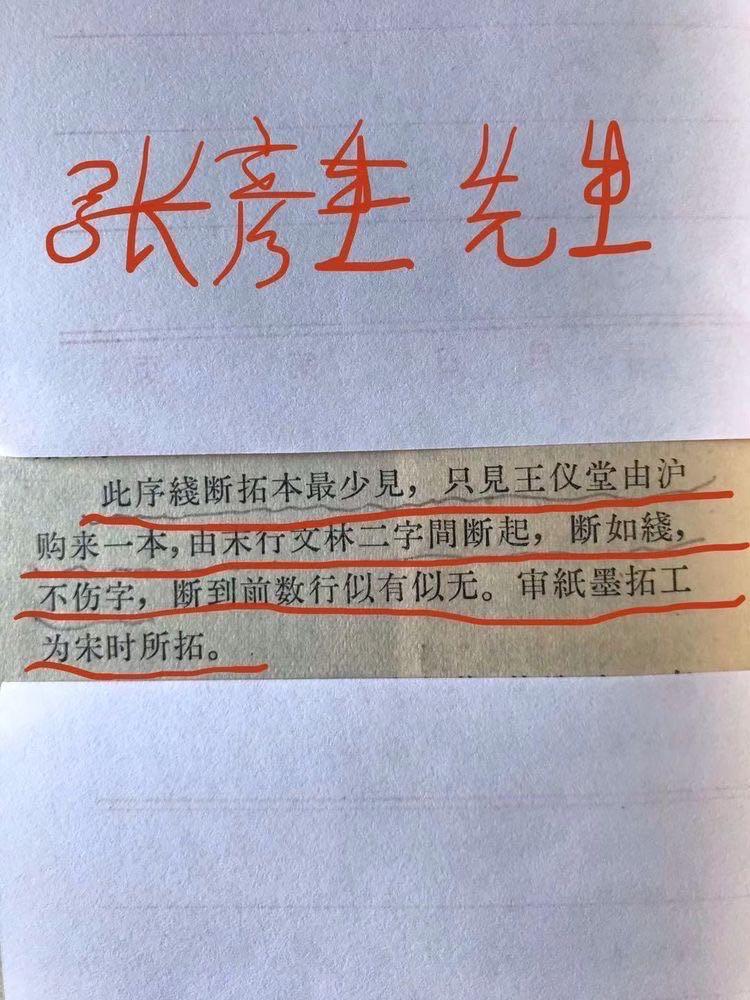 张彦生先生
此序綫断拓本最少見，只見王仪堂由沪
购来一本，由末行文林二字間断起，断如綫，
不伤字，断到前数行似有似无。审紙墨拓工
为宋时所拓。